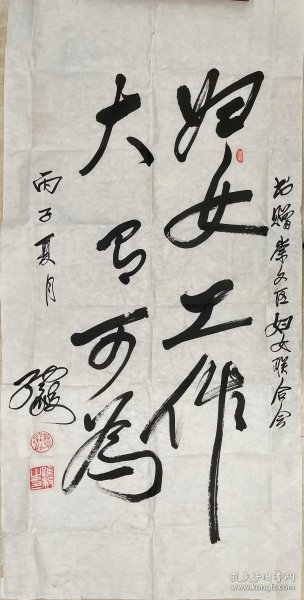 书赠崇文区妇女联合会
妇女工作
大有可为
丙子夏月
孔夫子旧书网
www.kongfz.com